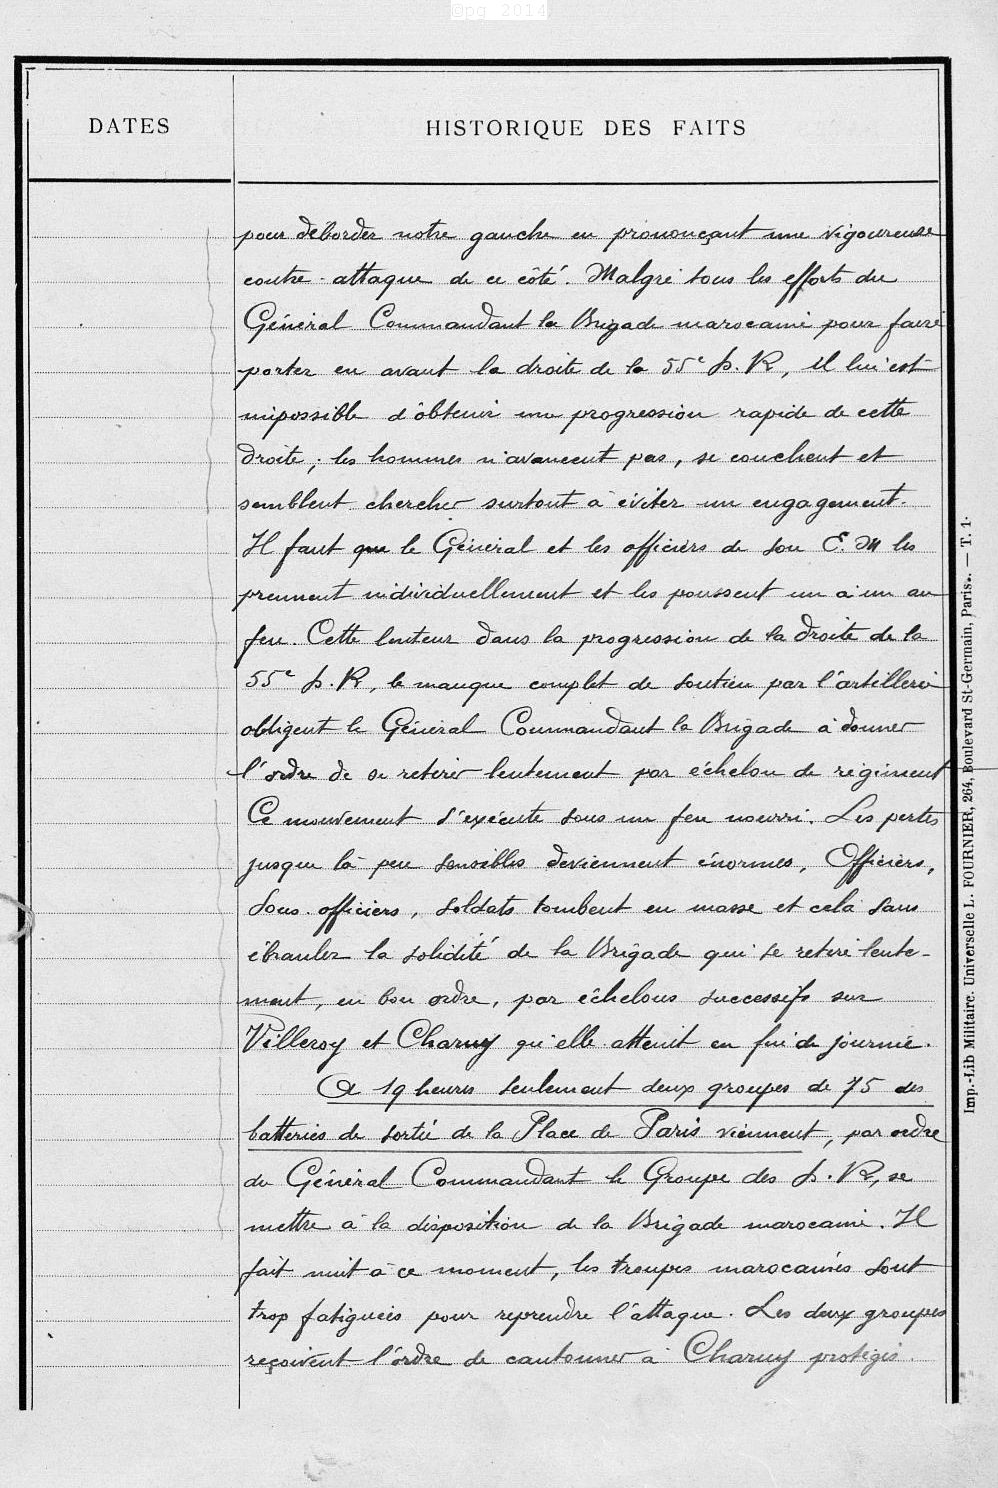 ©pg 2014
DATES
HISTORIQUE DES FAITS
pour déborder notre gauche en prononçant une vigoureuse
contre-attaque de ce côté. Malgré tous les efforts du
Général Commandant la Brigade marocaine pour faire
porter en avant la droite de la 55e D.R, il lui est
impossible d'obtenir une progression rapide de cette
droite; les hommes n'avancent pas, se couchent et
semblent chercher surtout à éviter un engagement.
Il faut que le Général et les officiers de son E.M les
prennent individuellement et les poussent un à un au
feu. Cette lenteur dans la progression de la droite de la
55e D.R, le manque complet de soutien par l'artillerie
obligent le Général Commandant la Brigade à donner
l'ordre de se retirer lentement par échelon de régiment
Ce mouvement s'exécute sous un feu nourri. Les pertes
jusque là peu sensibles deviennent énormes, Officiers,
Sous-officiers, soldats tombent en masse et cela sans
ébranler la solidité de la Brigade qui se retire lente-
ment, en bon ordre, par échelons successifs sur
Villeroy et Charny qu'elle atteint en fin de journée.
A 19 heures seulement deux groupes de 75 des
batteries de sortie de la Place de Paris viennent, par ordre
du Général Commandant le Groupe des D.R, se
mettre à la disposition de la Brigade marocaine. Il
fait nuit à ce moment, les troupes marocaines sont
trop fatiguées pour reprendre l'attaque. Les deux groupes
reçoivent l'ordre de cantonner à Charny protégés.
Imp.-Lib Militaire. Universelle L. FOURNIER, 264, Boulevard St-Germain, Paris. — T. 1.